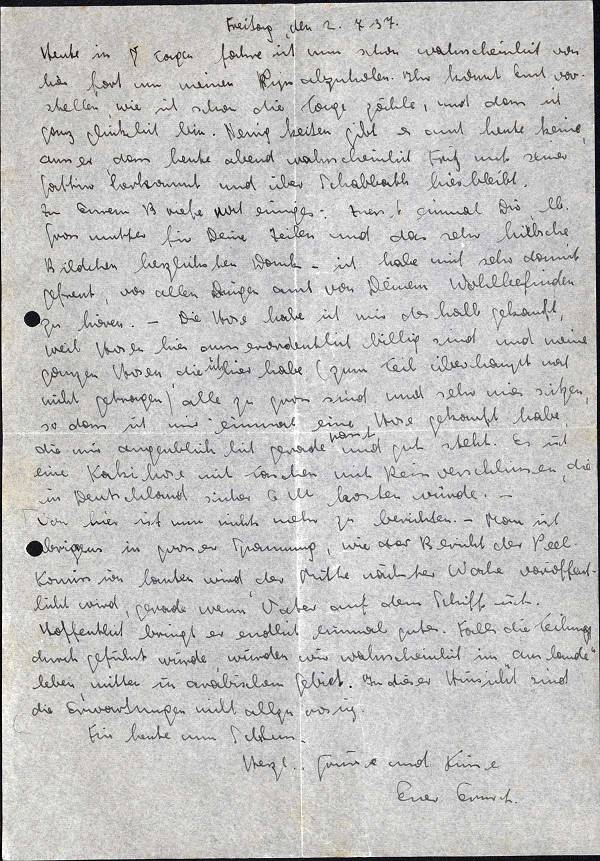 Freitag, den 2. 7 37.
Heute in 8 Tagen fahre ich nun schon wahrscheinlich von
hier fort um meinen abzuholen. Ihr könnt Euch vor-
stellen, wie ich schon die Tage zähle, und dass ich
ganz glücklich bin. Neuigkeiten gibt es auch heute keine,
ausser dass heute abend wahrscheinlich Fritz mit seiner
Gattin herkommt und über Schabbath hierbleibt.
Zu Eurem Briefe noch einiges: Zuerst einmal Dir, lb.
Grossmutter für Deine Zeilen und das sehr hübsche
Bildchen herzlichsten Dank - ich habe mich sehr damit
gefreut, vor allen Dingen auch von Deinem Wohlbefinden
zu hören. - Die Hose habe ich mir deshalb gekauft,
weil Hosen hier ausserordentlich billig sind und meine
ganzen Hosen die ich hier habe (zum Teil überhaupt noch
nicht getragen) alle zu gross sind und sehr mies sitzen,
so dass ich mir einmal eine Hose gekauft habe,
die mir augenblicklich gerade passt und gut steht. Es ist
eine Kakihose mit Taschen mit Reissverschlüssen, die
in Deutschland sicher 6 M kosten würde. -
Von hier ist nun nichts mehr zu berichten. - Man ist
übrigens in grosser Spannung, wie der Bericht der Peel-
Komission lauten wird der Mitte nächster Woche veröffent-
licht wird, gerade wenn Vater auf dem Schiff ist.
Hoffentlich bringt er endlich einmal gutes. Falls die Teilung
durchgeführt würde, würden wir wahrscheinlich im "Auslande"
leben, mitten in arabischem Gebiet. In dieser Hinsicht sind
die Erwartungen nicht allzu rosig.
Für heute nun Schluss.
Herzl. Grüsse und Küsse
Euer